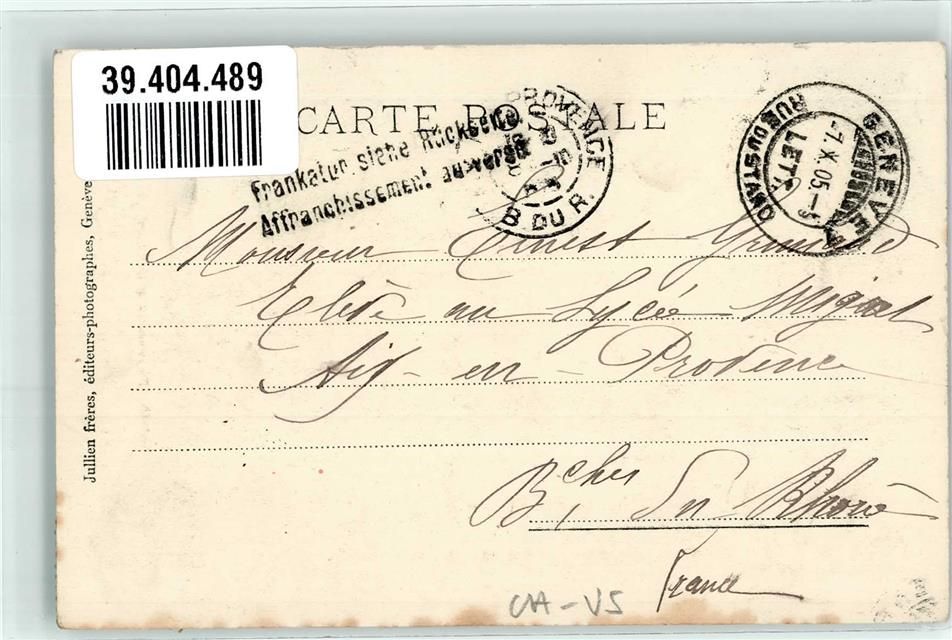 39.404.489
CARTE POSTALE
Frankatur siehe Rückseite
Affranchissement au verso
PROVENCE
B. DU R.
GENÈVE
RUE DU STAND
LETT.
-7.X.05.-
Monsieur Ernest
Elève au Lycée Mignet
Aix-en-Provence
Bches Du Rhône
France
Jullien frères, éditeurs-photographes, Genève
UA-VS